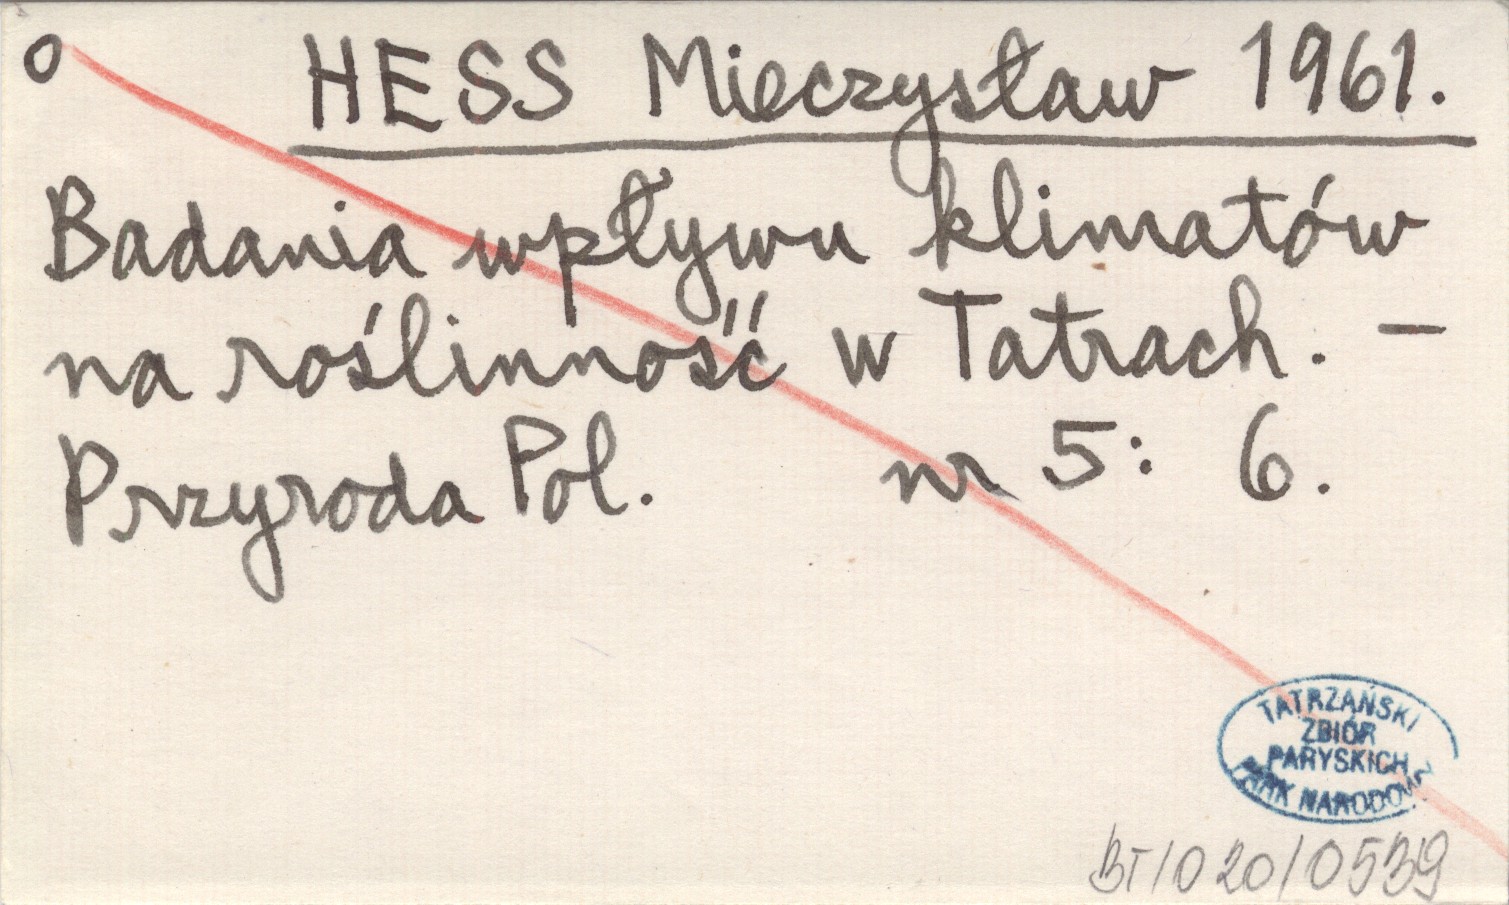 o HESS Mieczysław 1961.
Badania wpływu klimatów
na roślinność w Tatrach. –
Przyroda Pol. nr 5: 6.
TATRZAŃSKI
ZBIÓR
PARYSKICH
PARK NARODOWY
BT/020/0539